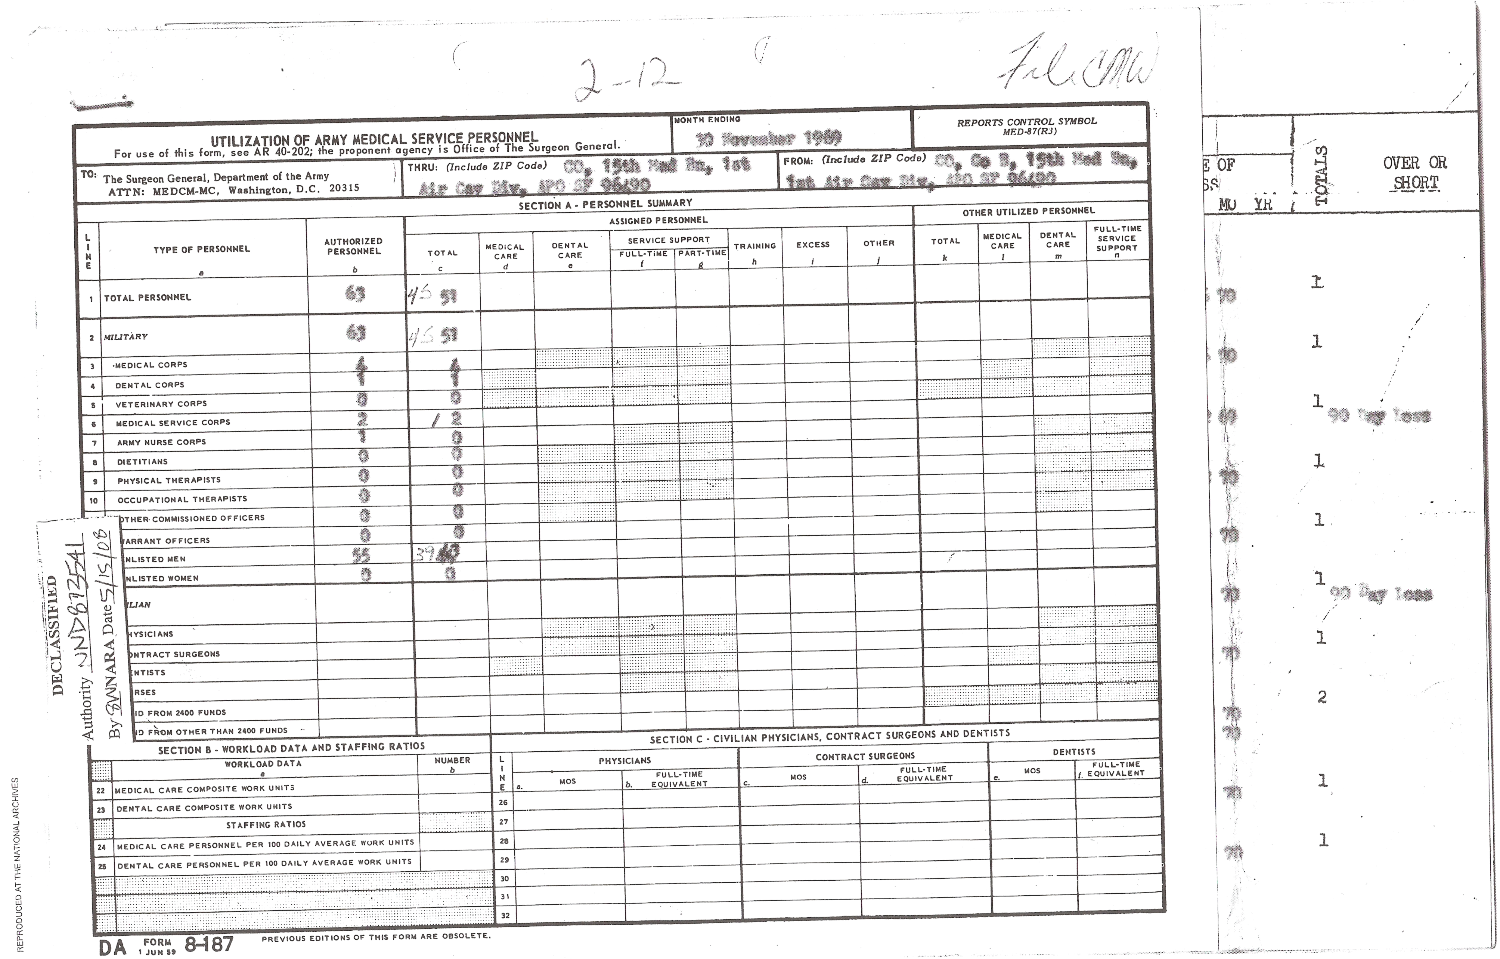 2-12
File CMW
UTILIZATION OF ARMY MEDICAL SERVICE PERSONNEL
For use of this form, see AR 40-202; the proponent agency is Office of The Surgeon General.
MONTH ENDING
30 November 1969
REPORTS CONTROL SYMBOL
MED-87(R3)
TO: The Surgeon General, Department of the Army
ATTN: MEDCM-MC, Washington, D.C. 20315
THRU: (Include ZIP Code) CO, 15th Med Bn, 1st
Air Cav Div, APO SF 96490
FROM: (Include ZIP Code) CO, Co B, 15th Med Bn,
1st Air Cav Div, APO SF 96490
SECTION A - PERSONNEL SUMMARY
LINE
TYPE OF PERSONNEL
a
AUTHORIZED PERSONNEL
b
ASSIGNED PERSONNEL
OTHER UTILIZED PERSONNEL
TOTAL
c
MEDICAL CARE
d
DENTAL CARE
e
SERVICE SUPPORT
FULL-TIME
f
PART-TIME
g
TRAINING
h
EXCESS
i
OTHER
j
TOTAL
k
MEDICAL CARE
l
DENTAL CARE
m
FULL-TIME SERVICE SUPPORT
n
1 TOTAL PERSONNEL 63 45 51
2 MILITARY 63 45 51
3 MEDICAL CORPS 4 4
4 DENTAL CORPS 1 1
5 VETERINARY CORPS 0 0
6 MEDICAL SERVICE CORPS 2 1 2
7 ARMY NURSE CORPS 1 0
8 DIETITIANS 0 0
9 PHYSICAL THERAPISTS 0 0
10 OCCUPATIONAL THERAPISTS 0 0
OTHER COMMISSIONED OFFICERS 0 0
ARRANT OFFICERS 0 0
NLISTED MEN 55 39
NLISTED WOMEN 0 0
ILIAN
HYSICIANS
ONTRACT SURGEONS
NTISTS
RSES
ID FROM 2400 FUNDS
D FROM OTHER THAN 2400 FUNDS
DECLASSIFIED
Authority NND873541
By BWNARA Date 5/15/08
SECTION B - WORKLOAD DATA AND STAFFING RATIOS
WORKLOAD DATA
a
NUMBER
b
22 MEDICAL CARE COMPOSITE WORK UNITS
23 DENTAL CARE COMPOSITE WORK UNITS
STAFFING RATIOS
24 MEDICAL CARE PERSONNEL PER 100 DAILY AVERAGE WORK UNITS
25 DENTAL CARE PERSONNEL PER 100 DAILY AVERAGE WORK UNITS
SECTION C - CIVILIAN PHYSICIANS, CONTRACT SURGEONS AND DENTISTS
LINE
PHYSICIANS
CONTRACT SURGEONS
DENTISTS
a. MOS
b. FULL-TIME EQUIVALENT
c. MOS
d. FULL-TIME EQUIVALENT
e. MOS
f. FULL-TIME EQUIVALENT
26
27
28
29
30
31
32
DA FORM 8-187
1 JUN 59
PREVIOUS EDITIONS OF THIS FORM ARE OBSOLETE.
REPRODUCED AT THE NATIONAL ARCHIVES
E OF
SS
MO YR
TOTALS
OVER OR
SHORT
70 1
70 1
69 1 90 Day Loss
70 1
70 1
70 1 90 Day Loss
70 1
70 2
70
70 1
70 1